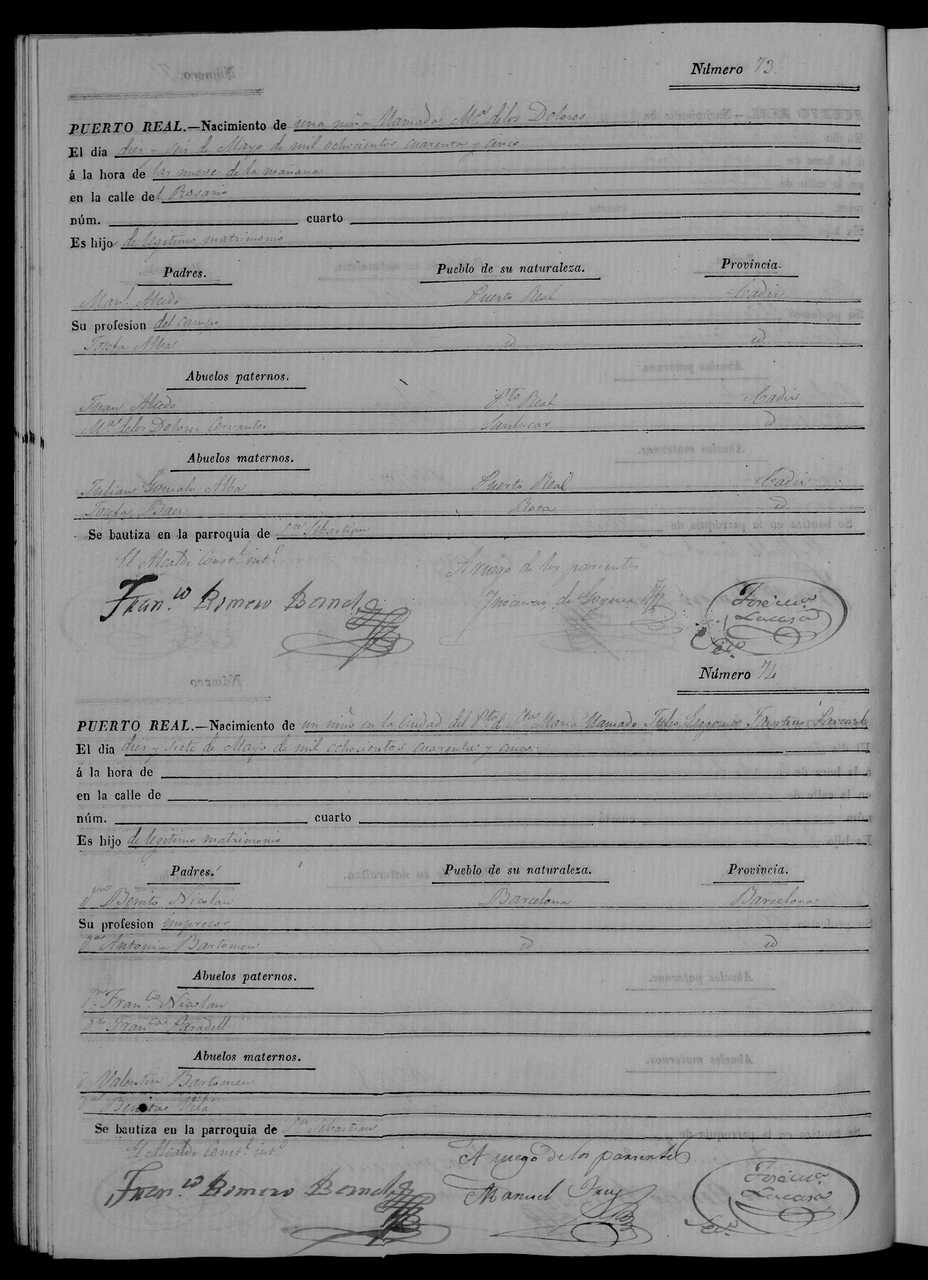 Número 73.
PUERTO REAL.—Nacimiento de una niña llamada Mª. de los Dolores
El dia diez y seis de Mayo de mil ochocientos cuarenta y cinco
á la hora de las nueve de la mañana
en la calle del Rosario
núm. cuarto
Es hijo de legitimo matrimonio
Padres. Pueblo de su naturaleza. Provincia.
Manl. Puerto Real Cadiz
Su profesion del campo
Josefa Alba id id
Abuelos paternos.
Juan Pto. Real Cadiz
Mª. de los Dolores Cervantes Sanlucar id
Abuelos maternos.
Julian Gonzalo Alba Puerto Real Cadiz
Josefa Rota id
Se bautiza en la parroquia de Sn. Sebastian
El Alcalde Const. int.
A ruego de los parientes
Franco. Romero
Número 74
PUERTO REAL.—Nacimiento de un niño en la Ciudad del Pto. de Sta. Maria llamado Julio Faustino
El dia diez y siete de Mayo de mil ochocientos cuarenta y cinco
á la hora de
en la calle de
núm. cuarto
Es hijo de legitimo matrimonio
Padres. Pueblo de su naturaleza. Provincia.
Benito Nicolau Barcelona Barcelona
Su profesion
Antonia Bartomeu id id
Abuelos paternos.
Franco. Nicolau
Franca. Paradell
Abuelos maternos.
Valentin Bartomeu
Vila
Se bautiza en la parroquia de Sn. Sebastian
El Alcalde Const. int.
A ruego de los parientes
Franco. Romero
Manuel